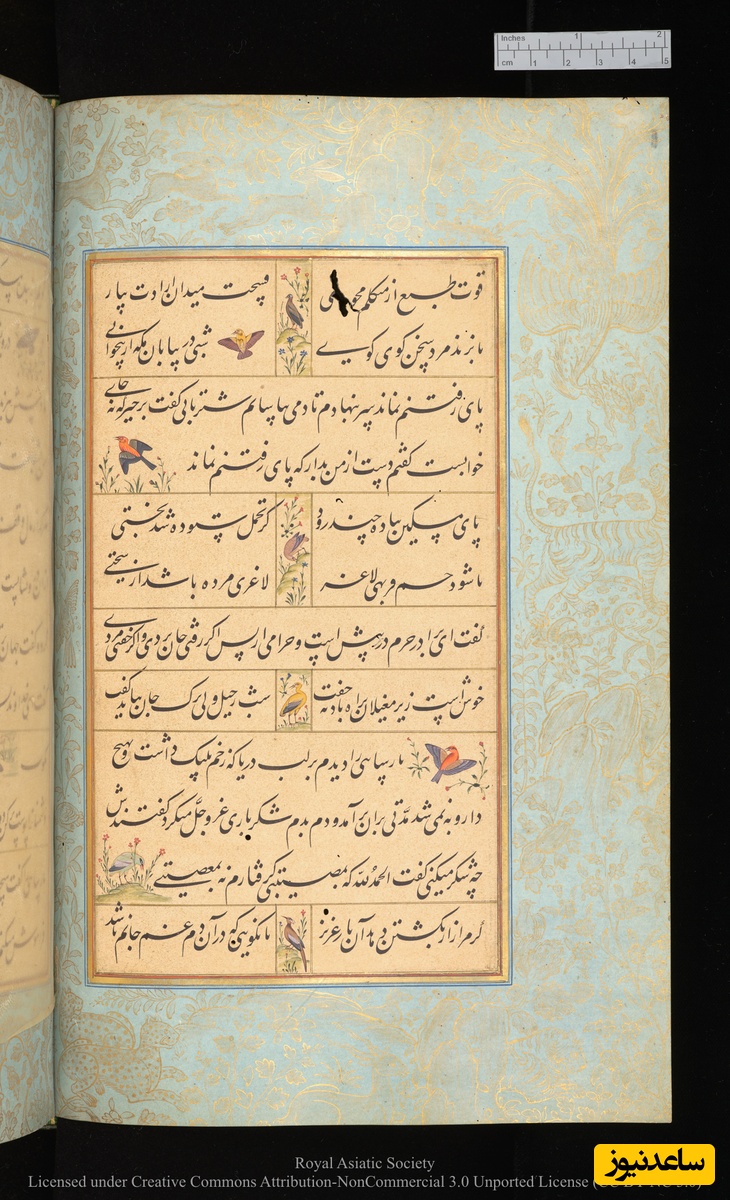 Inches 1 2
cm 1 2 3 4 5
قوت طبع از متکلم مجوی فسحت میدان ارادت بیار
تا بزند مرد سخن گوی گویی شبی در بیابان مکه از بیخوابی
پای رفتنم نماند سر بنهادم تا دمی بیاسایم شتربانی گفت برخیز که نه جای
خوابست گفتم دست از من بدار که پای رفتنم نماند
پای مسکین پیاده چند رود کز تحمل ستوده شد بختی
تا شود جسم فربهی لاغر لاغری مرده باشد از سختی
گفت ای برادر حرم در پیش است و حرامی از پس اگر رفتی جان بردی و اگر خفتی مردی
خوش است زیر مغیلان براه بادیه خفت شب رحیل ولی ترک جان بباید گفت
پارسایی را دیدم بر لب دریا که زخم پلنگ داشت و بهیچ
دارو به نمی شد مدتی بران برآمد و دم بدم شکر باری عز و جل میکرد گفتندش
چه شکر میکنی گفت الحمد لله که بمصیبتی گرفتارم نه بمعصیتی
گرم از زار بکشتن دهد آن یار عزیز تا نگویی که در آن دم غم جانم باشد
Royal Asiatic Society
Licensed under Creative Commons Attribution-NonCommercial 3.0 Unported License
ساعدنیوز